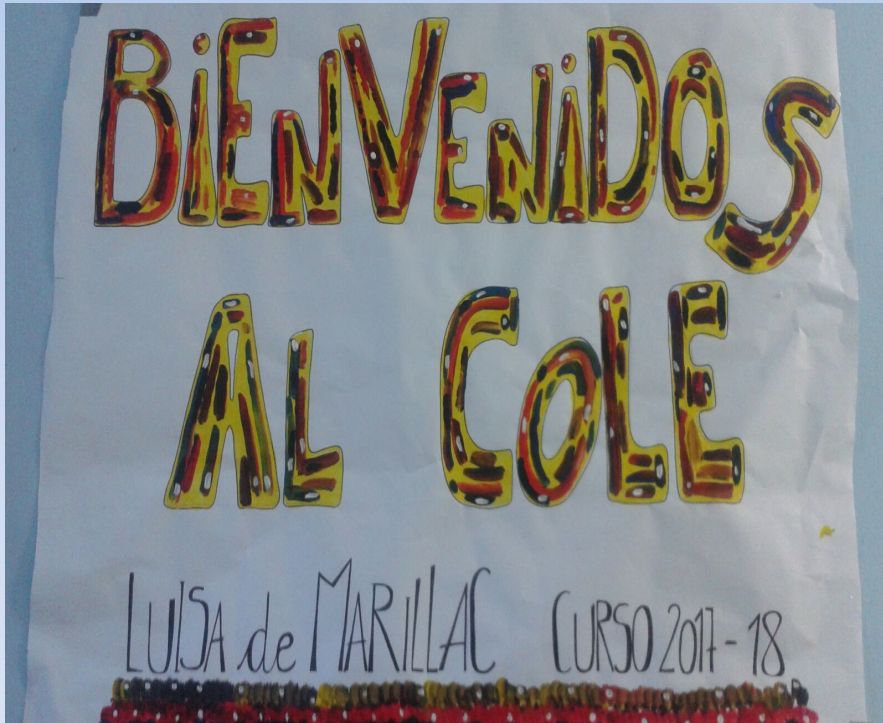 BiENVENiDOS
AL COLE
LUISA de MARILLAC CURSO 2017-18